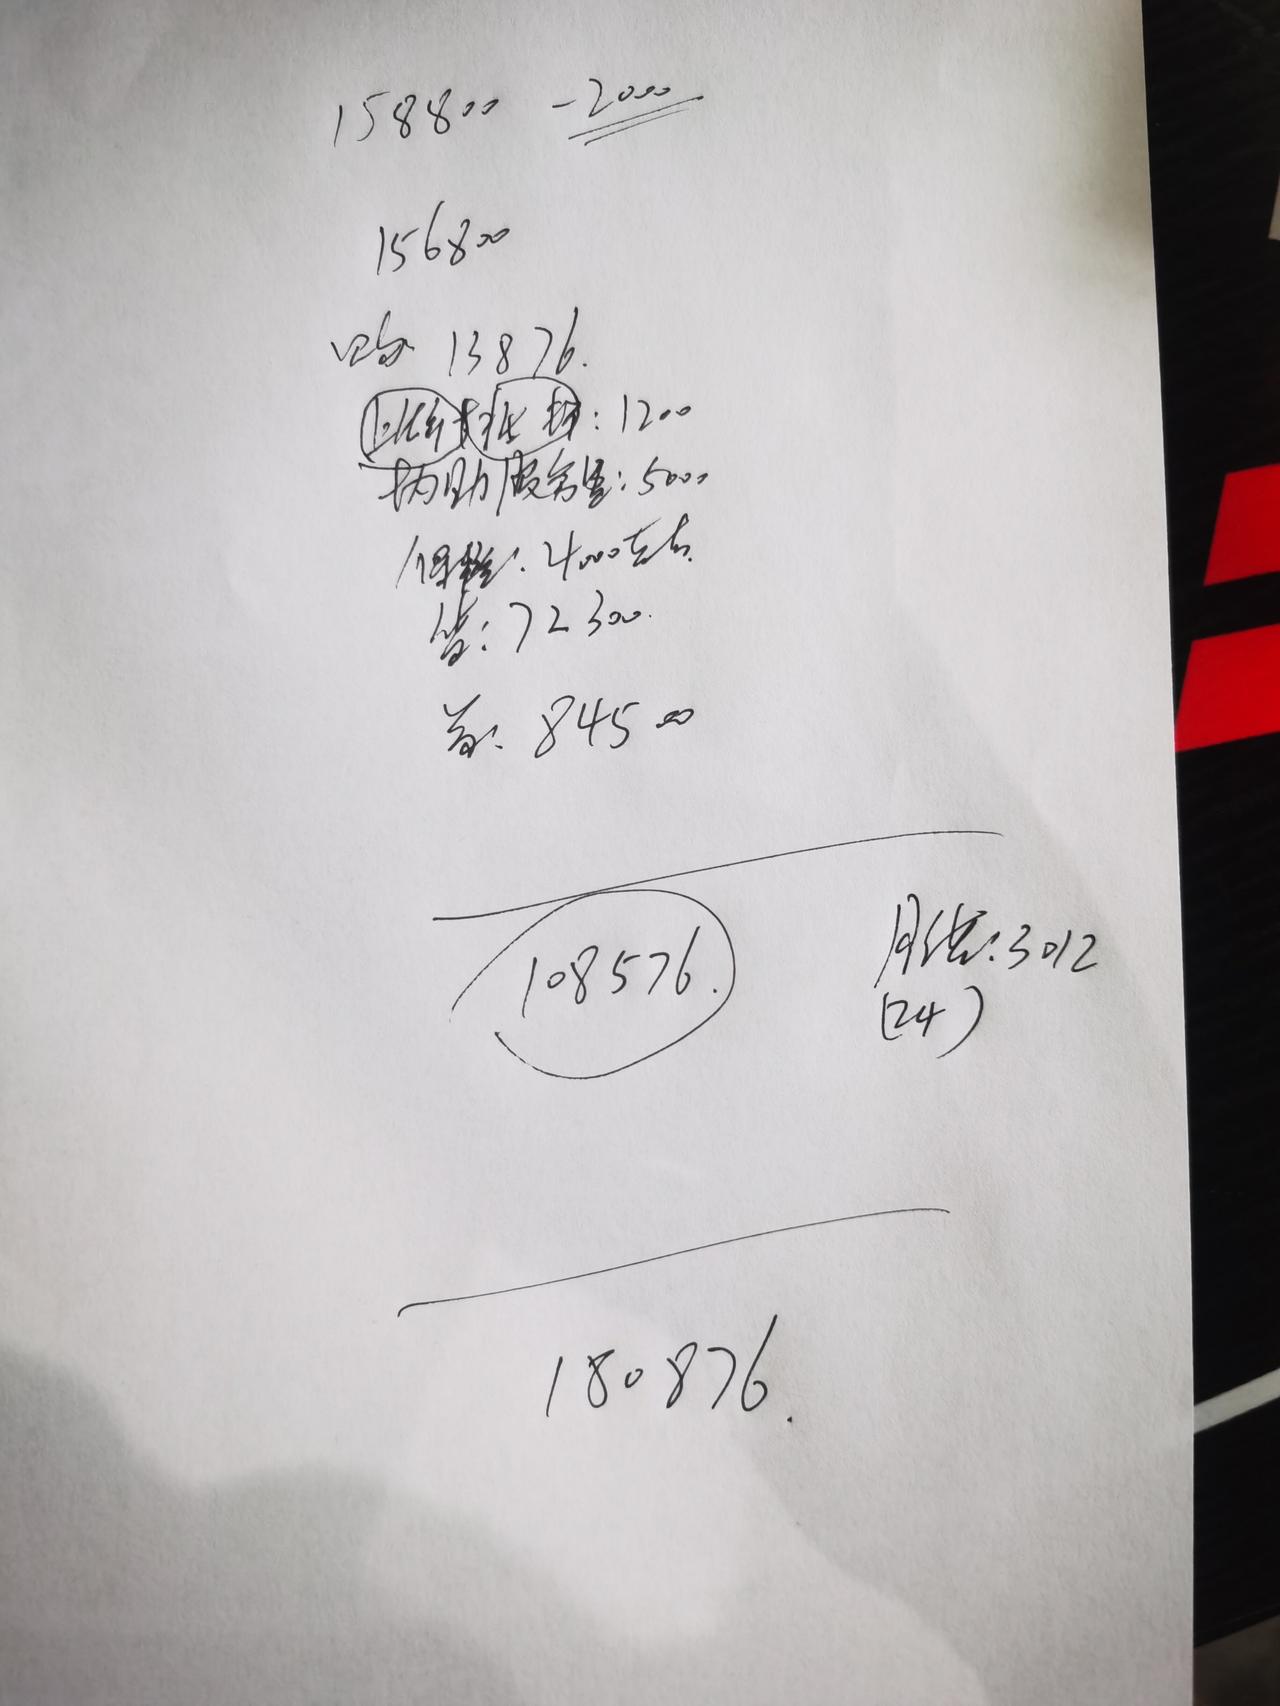 158800 -2000
156800
购 13876.
上牌 挂牌: 1200
服务费: 5000
保险: 4000左右.
贷: 72300.
首: 84500
108576. 月供: 3012
(24)
180876.